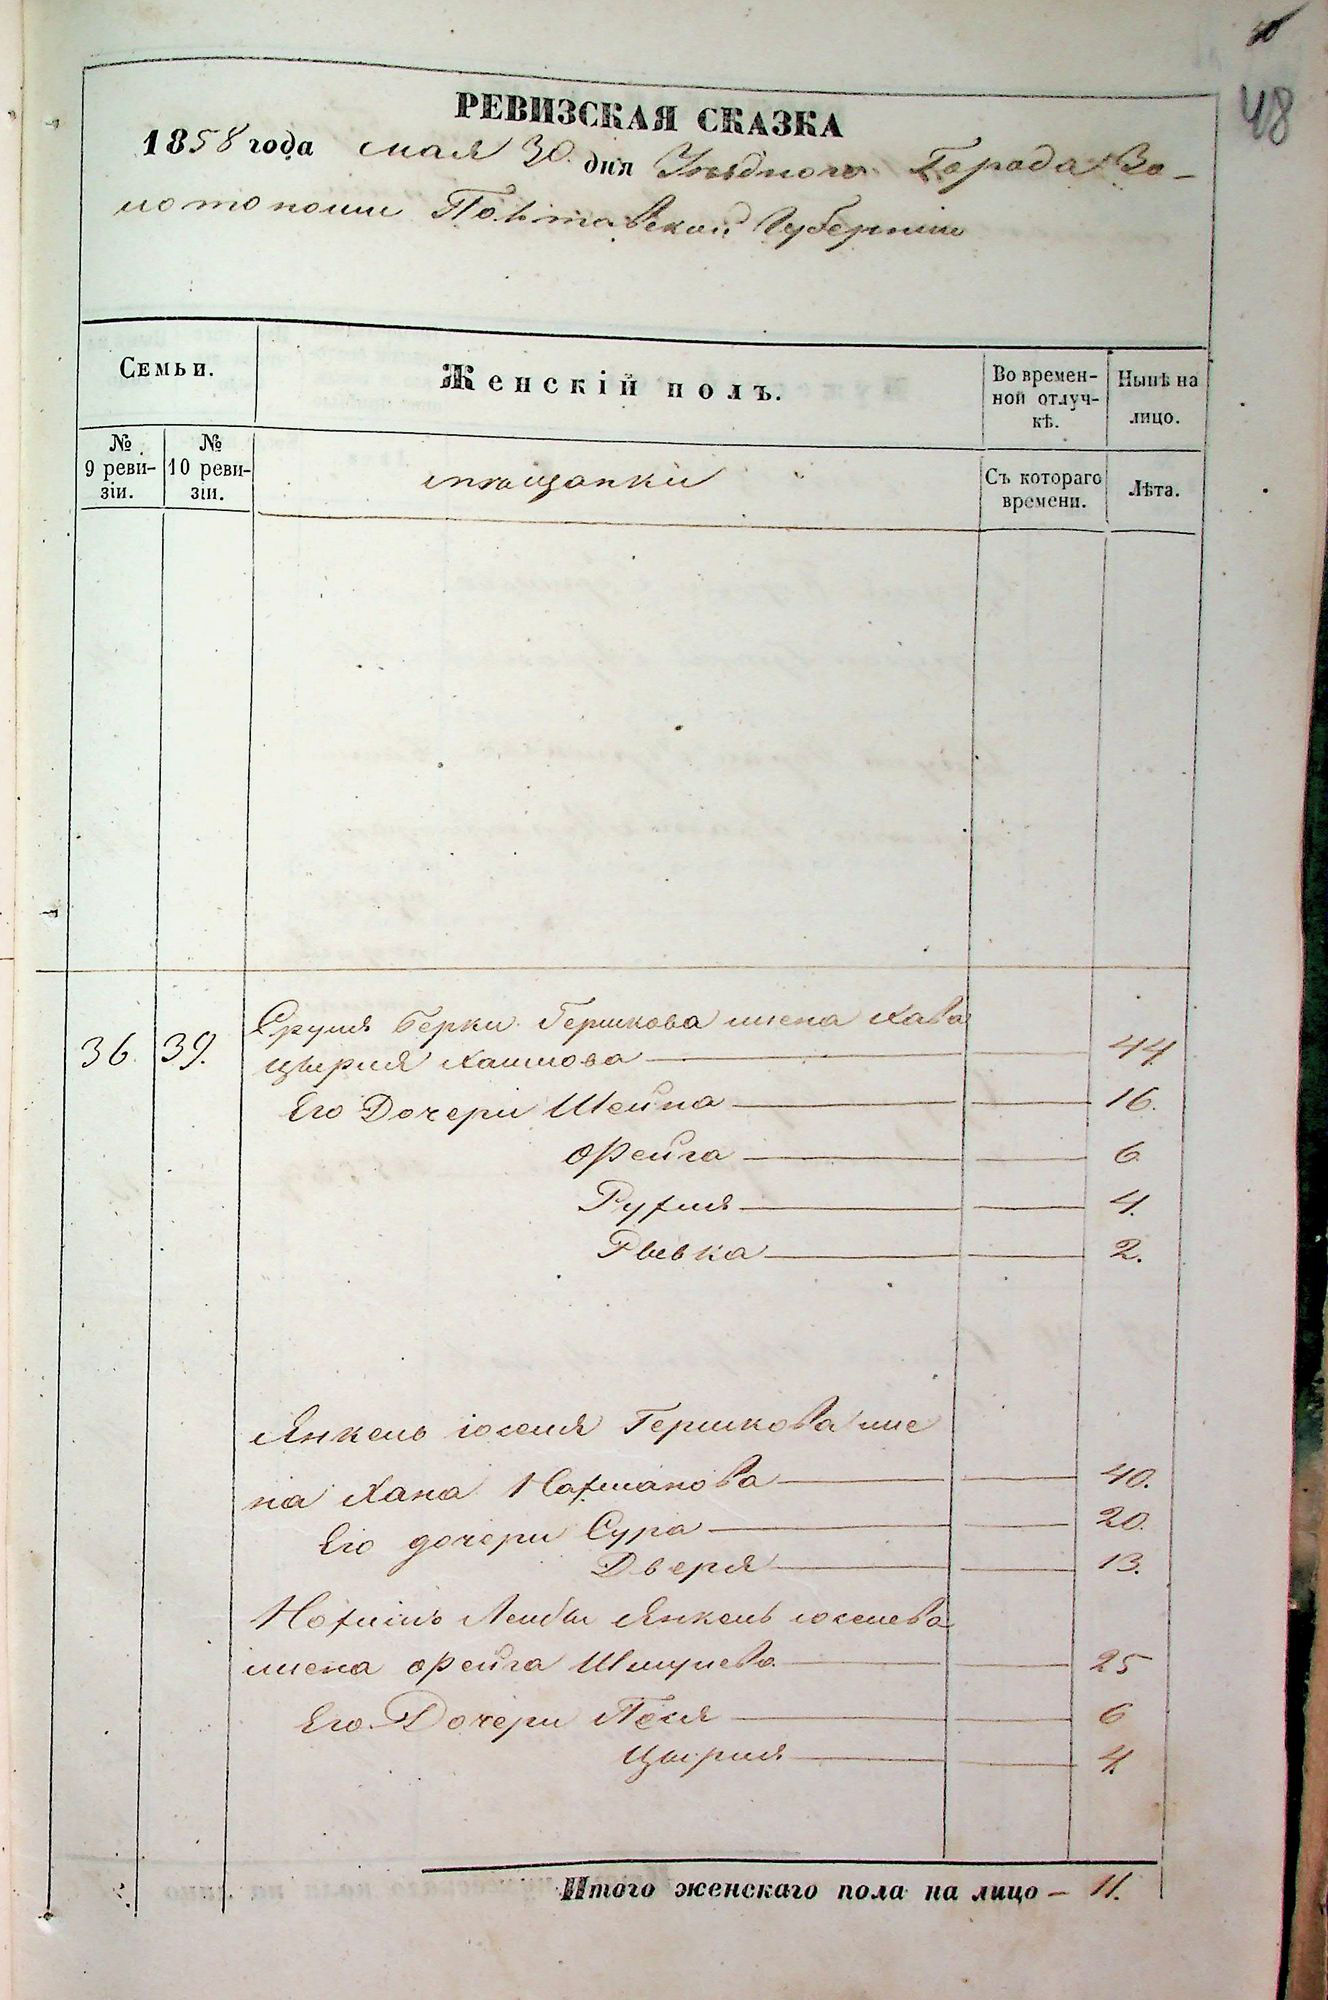 48
РЕВИЗСКАЯ СКАЗКА
1858 года мая 30 дня Уѣзднаго Города Зо-
лотоноши Полтавской Губерніи
Семьи.
Женскій полъ.
Во времен-
ной отлуч-
кѣ.
Нынѣ на
лицо.
№
9 реви-
зіи.
№
10 реви-
зіи.
мѣщанки
Съ котораго
времени.
Лѣта.
Сруля Берки Гершкова жена Хава
36. 39. Цырля Хаимова — 44
Его Дочери Шейна — 16.
Фейга — 6
Рухля — 4.
Рывка — 2.
Янкель Іоселя Гершкова же
на Хана Нахманова — 40.
Его дочери Сура — 20.
Двера — 13.
Лейбы Янкель Іоселева
жена Фейга Шмулева — 25
Его Дочери Песя — 6
Цырля — 4.
Итого женскаго пола на лицо — 11.